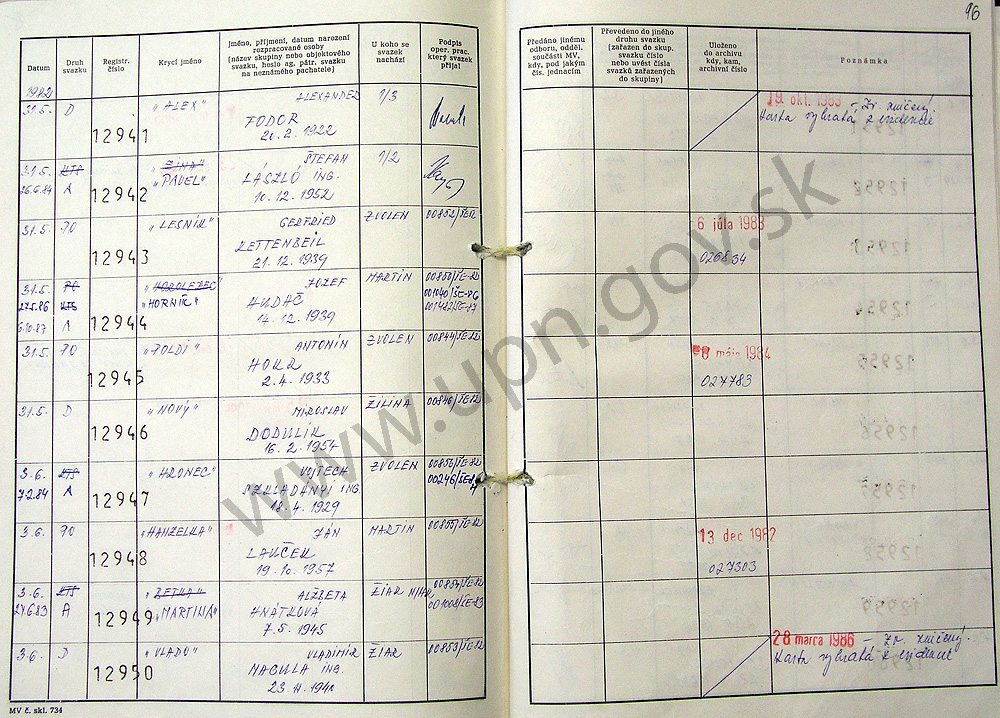 96
Datum
Druh svazku
Registr. číslo
Krycí jméno
Jméno, příjmení, datum narození
rozpracované osoby
(název skupiny nebo objektového
svazku, heslo ag. pátr. svazku
na neznámého pachatele)
U koho se
svazek
nachází
Podpis
oper. prac.
který svazek
přijal
Předáno jinému
odboru, odděl.
součásti MV,
kdy, pod jakým
čís. jednacím
Převedeno do jiného
druhu svazku
(zařazen do skup.
svazku číslo
nebo uvést čísla
svazků zařazených
do skupiny)
Uloženo
do archivu
kdy, kam,
archivní číslo
Poznámka
1982
31.5. D 12941 "ALEX" ALEXANDER 1/3
FODOR
20.2.1922
19 okt. 1983 - Zv. zničený.
karta vybratá z evidencie
31.5. KTS ŠTEFAN 1/2
26.6.84 A 12942 "PAVEL" LÁSZLÓ ING.
10.12.1952
31.5. PO 12943 "LESNÍK" GERFRIED ZVOLEN 00852/ŠE-82
KETTENBEIL
21.12.1939
6 júla 1983
026834
31.5. PO "HOROLEZEC" JOZEF MARTIN 00850/ŠE-82
27.5.86 KTS "HORNÍK" 001040/ŠE-86
6.10.87 A 12944 HUDAČ 001482/ŠE-87
14.12.1939
31.5. PO 12945 "POLDI" ANTONÍN ZVOLEN 00844/ŠE-82
HOKR
2.4.1933
mája 1984
027783
31.5. D 12946 "NOVÝ" MIROSLAV ŽILINA 00846/ŠE-82
DODULÍK
16.2.1954
3.6. KTS "HRONEC" VOJTECH ZVOLEN 00856/ŠE-82
7.2.84 A 12947 SZKLADÁNYI ING. 00246/ŠE-84
18.4.1929
3.6. PO 12948 "HANZELKA" JÁN MARTIN 00855/ŠE-82
LAUČEK
19.10.1957
13 dec 1982
027303
3.6. KTS "BETKA" ALŽBETA ŽIAR N/HR. 00854/ŠE-82
27.6.83 A 12949 "MARTINA" HNÁTKOVÁ 001008/ŠE-83
7.5.1945
3.6. D 12950 "VLADO" VLADIMÍR ŽIAR 00853/ŠE-82
MACULA ING.
23.11.1940
28 marca 1986 - Zv. zničený.
karta vybratá z evidencie
MV č. skl. 734
www.upn.gov.sk